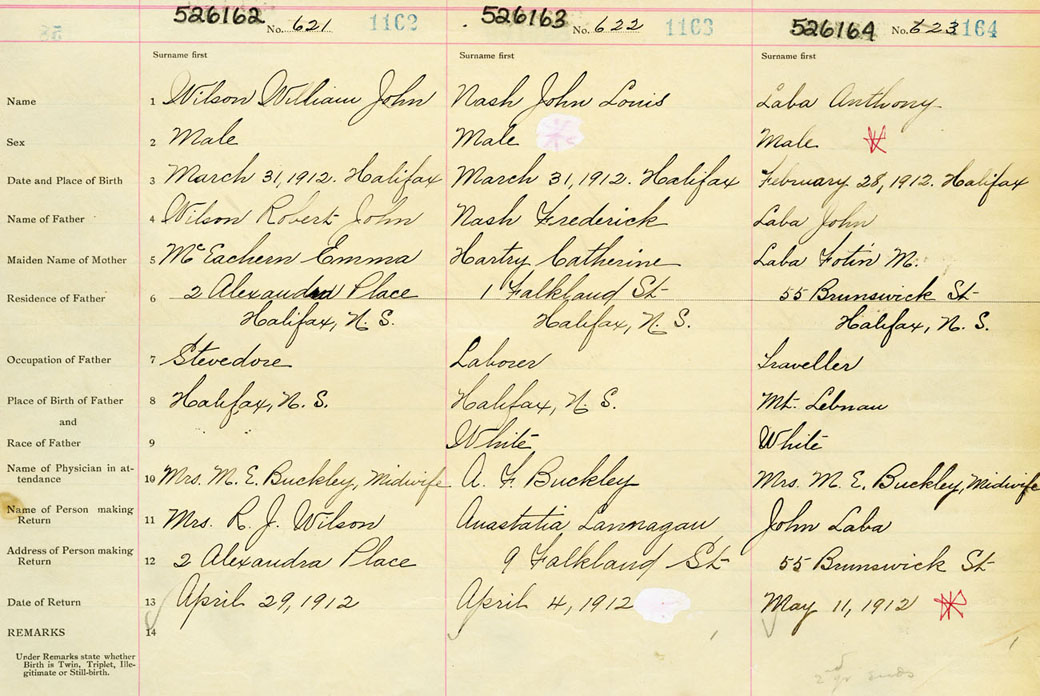 526162 No. 621 1162 526163 No. 622 1163 526164 No. 623 1164
Surname first Surname first Surname first
Name 1 Wilson William John Nash John Louis Laba Anthony
Sex 2 Male Male Male
Date and Place of Birth 3 March 31, 1912. Halifax March 31, 1912. Halifax February 28, 1912. Halifax
Name of Father 4 Wilson Robert John Nash Frederick Laba John
Maiden Name of Mother 5 McEachern Emma Hartry Catherine Laba Fotin M.
Residence of Father 6 2 Alexandra Place 1 Falkland St 55 Brunswick St
Halifax, N. S. Halifax, N. S. Halifax, N. S.
Occupation of Father 7 Stevedore Laborer Traveller
Place of Birth of Father 8 Halifax, N. S. Halifax, N. S. Mt. Lebnau
and
Race of Father 9 White White
Name of Physician in at-
tendance 10 Mrs. M. E. Buckley, Midwife A. F. Buckley Mrs. M. E. Buckley, Midwife
Name of Person making
Return 11 Mrs. R. J. Wilson Anastatia Lannagan John Laba
Address of Person making
Return 12 2 Alexandra Place 9 Falkland St 55 Brunswick St
Date of Return 13 April 29, 1912 April 4, 1912 May 11, 1912
REMARKS 14
Under Remarks state whether
Birth is Twin, Triplet, Ille-
gitimate or Still-birth.